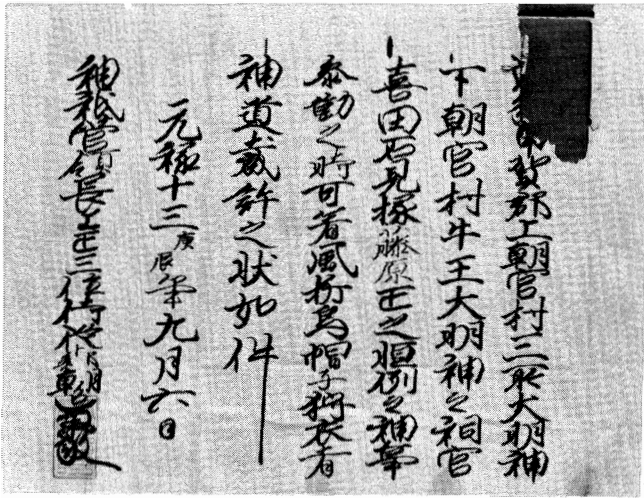 郡上朝宮村三所大明神
下朝宮村牛王大明神之祠官
喜田石見掾藤原正之恒例之神事
参勤之時可着風折烏帽子狩衣者
神道裁許之状如件
元禄十三庚辰年九月六日
神祇管領長上正三位侍従卜部朝臣